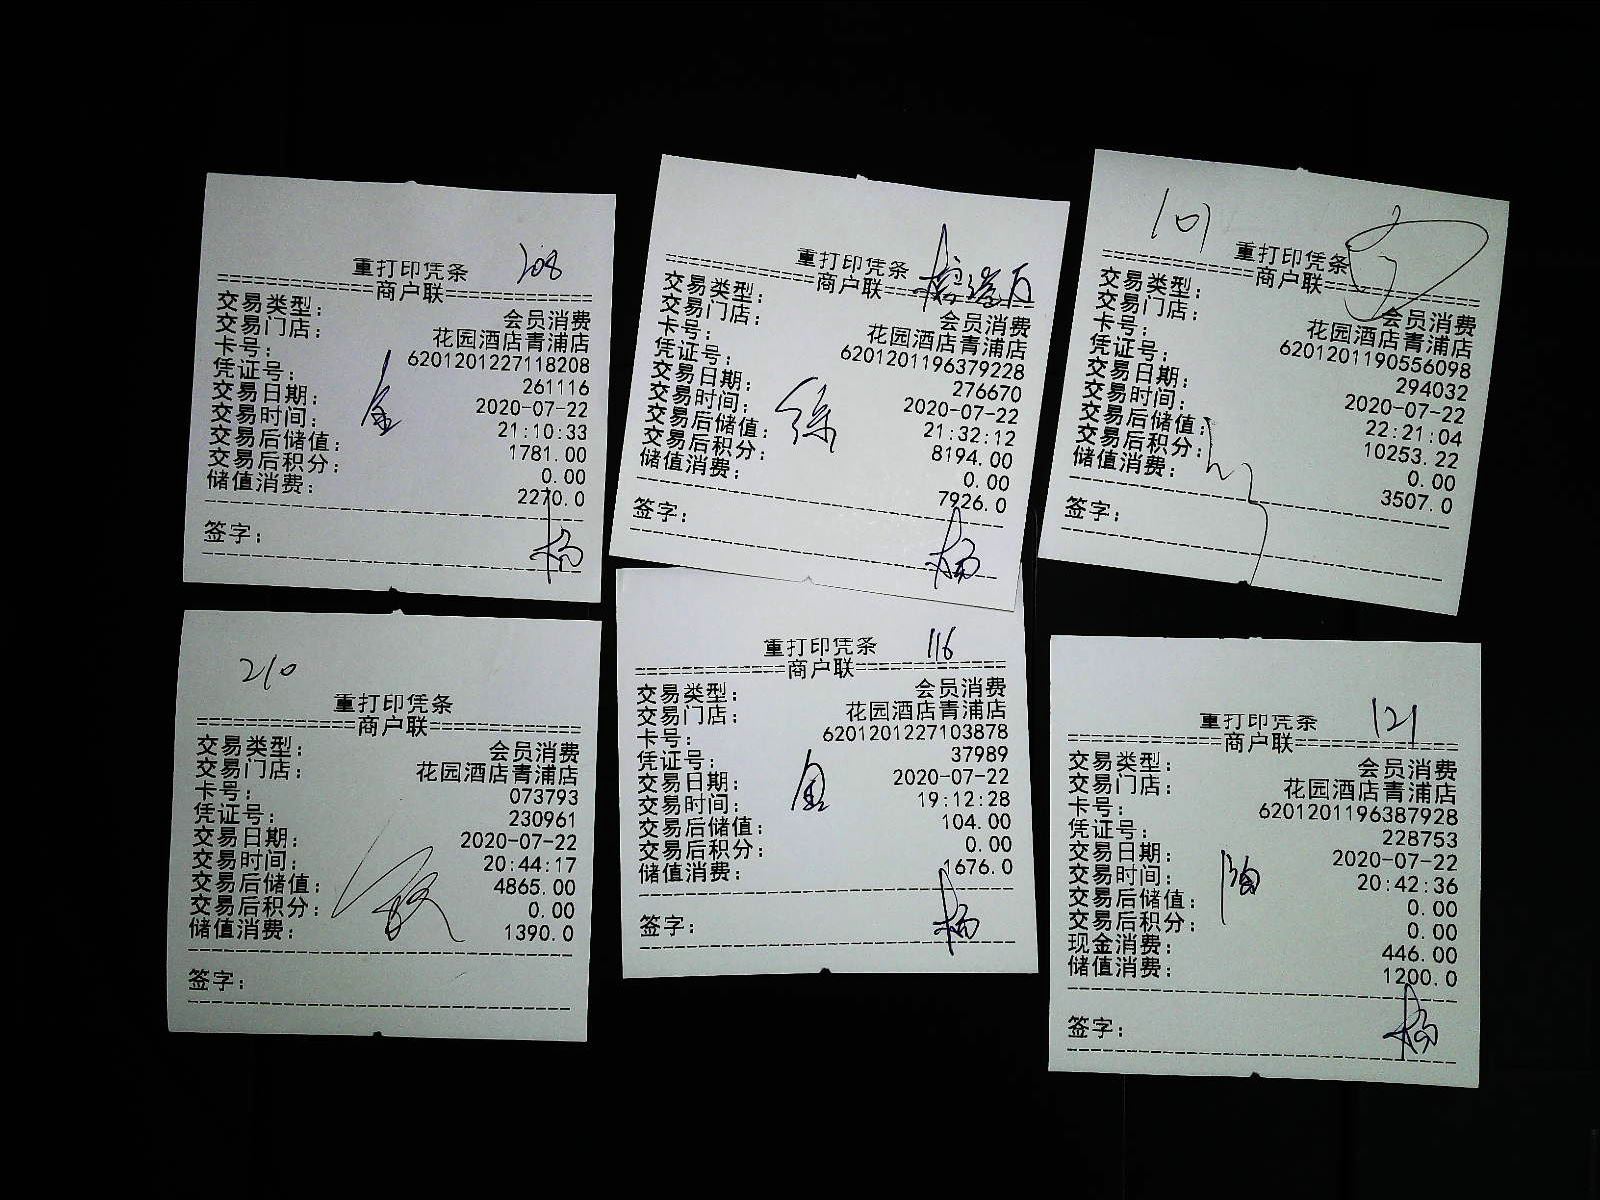 208
重打印凭条
商户联
交易类型: 会员消费
交易门店: 花园酒店青浦店
卡号: 6201201227118208
凭证号: 261116
交易日期: 2020-07-22
交易时间: 21:10:33
交易后储值: 1781.00
交易后积分: 0.00
储值消费: 2270.0
签字:
重打印凭条
商户联
交易类型: 会员消费
交易门店: 花园酒店青浦店
卡号: 6201201196379228
凭证号: 276670
交易日期: 2020-07-22
交易时间: 21:32:12
交易后储值: 8194.00
交易后积分: 0.00
储值消费: 7926.0
签字:
101
重打印凭条
商户联
交易类型: 会员消费
交易门店: 花园酒店青浦店
卡号: 6201201190556098
凭证号: 294032
交易日期: 2020-07-22
交易时间: 22:21:04
交易后储值: 10253.22
交易后积分: 0.00
储值消费: 3507.0
签字:
210
重打印凭条
商户联
交易类型: 会员消费
交易门店: 花园酒店青浦店
卡号: 073793
凭证号: 230961
交易日期: 2020-07-22
交易时间: 20:44:17
交易后储值: 4865.00
交易后积分: 0.00
储值消费: 1390.0
签字:
重打印凭条 116
商户联
交易类型: 会员消费
交易门店: 花园酒店青浦店
卡号: 6201201227103878
凭证号: 37989
交易日期: 2020-07-22
交易时间: 19:12:28
交易后储值: 104.00
交易后积分: 0.00
储值消费: 1676.0
签字:
重打印凭条 121
商户联
交易类型: 会员消费
交易门店: 花园酒店青浦店
卡号: 6201201196387928
凭证号: 228753
交易日期: 2020-07-22
交易时间: 20:42:36
交易后储值: 0.00
交易后积分: 0.00
现金消费: 446.00
储值消费: 1200.0
签字: